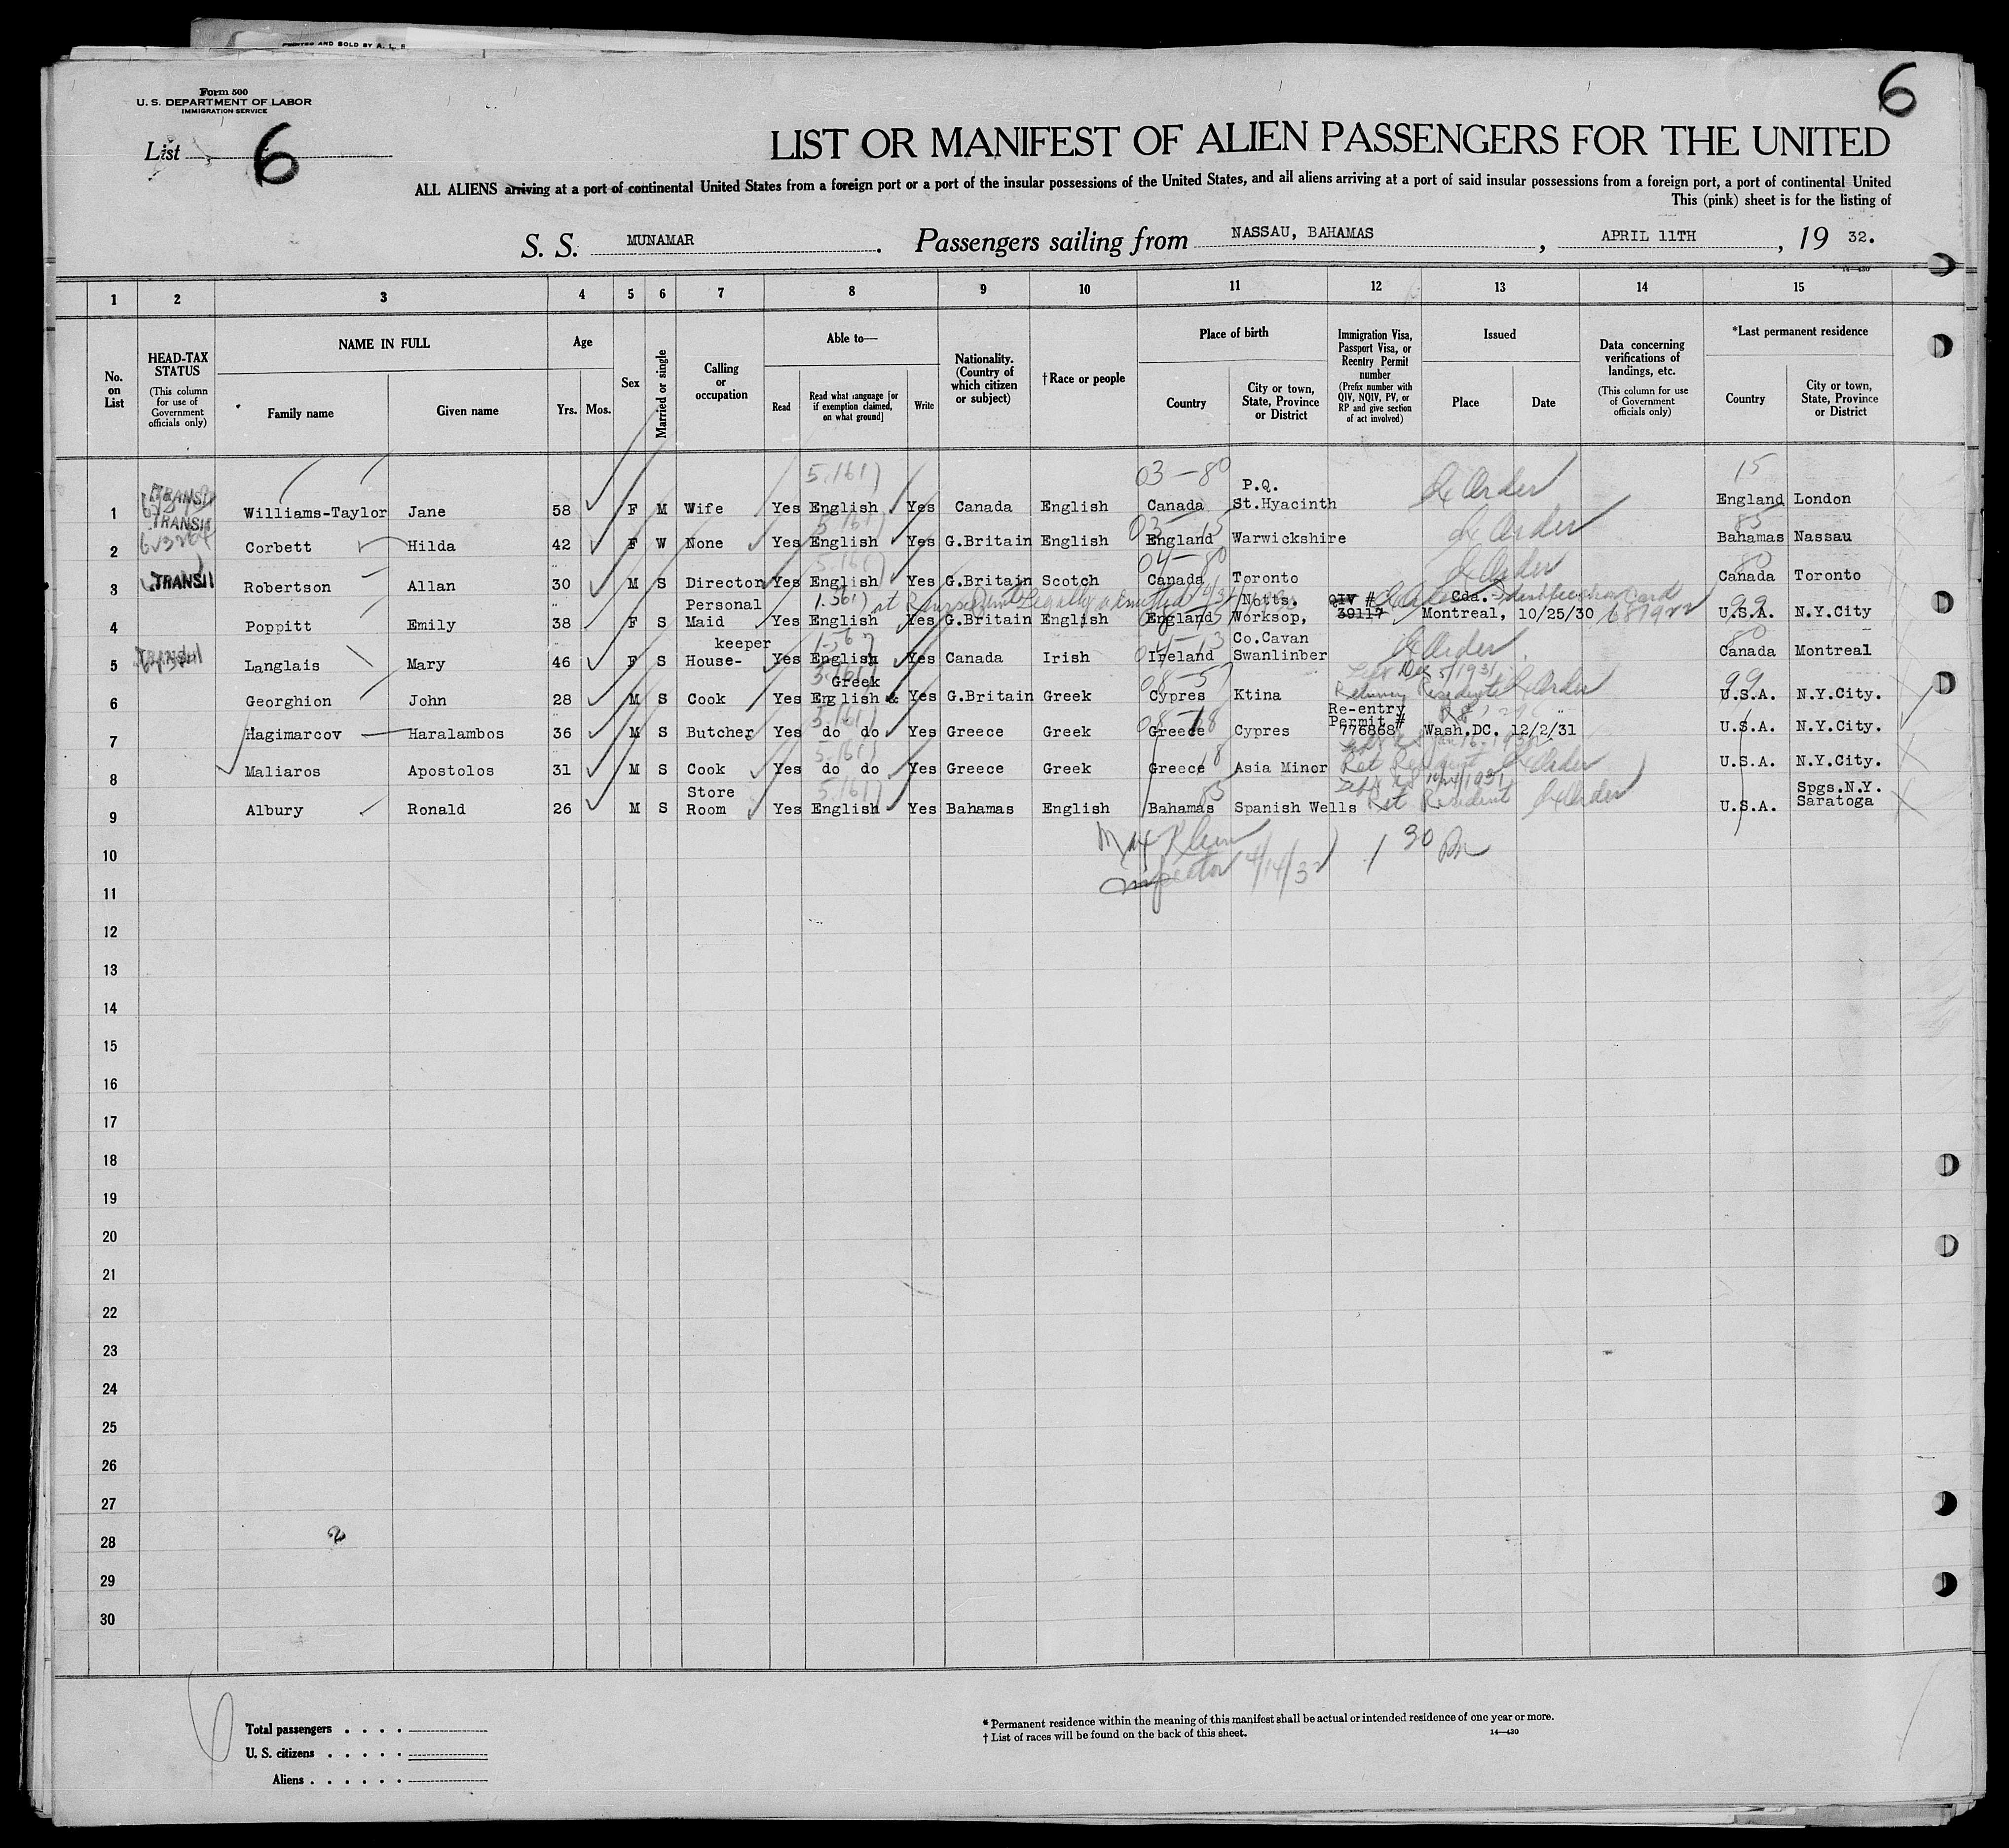 PRINTED AND SOLD BY A. L.
Form 500
U. S. DEPARTMENT OF LABOR
IMMIGRATION SERVICE
List 6
6
LIST OR MANIFEST OF ALIEN PASSENGERS FOR THE UNITED
ALL ALIENS arriving at a port of continental United States from a foreign port or a port of the insular possessions of the United States, and all aliens arriving at a port of said insular possessions from a foreign port, a port of continental United
This (pink) sheet is for the listing of
S. S. MUNAMAR. Passengers sailing from NASSAU, BAHAMAS, APRIL 11TH, 19 32.
14—430
1 2 3 4 5 6 7 8 9 10 11 12 13 14 15
No. on List
HEAD-TAX STATUS (This column for use of Government officials only)
NAME IN FULL
Family name Given name
Age
Yrs. Mos.
Sex
Married or single
Calling or occupation
Able to—
Read Read what language [or if exemption claimed, on what ground] Write
Nationality. (Country of which citizen or subject)
†Race or people
Place of birth
Country City or town, State, Province or District
Immigration Visa, Passport Visa, or Reentry Permit number (Prefix number with QIV, NQIV, PV, or RP and give section of act involved)
Issued
Place Date
Data concerning verifications of landings, etc. (This column for use of Government officials only)
*Last permanent residence
Country City or town, State, Province or District
5.161 03—80 15
TRANSIT P.Q.
1 Williams-Taylor Jane 58 F M Wife Yes English Yes Canada English Canada St.Hyacinth Ex Order England London
TRANSIT 5.161 03—15 85
2 Corbett Hilda 42 F W None Yes English Yes G.Britain English England Warwickshire Ex Order Bahamas Nassau
5.161 04—80 80
3 TRANSIT Robertson Allan 30 M S Director Yes English Yes G.Britain Scotch Canada Toronto Ex Order Canada Toronto
Personal Notts. QIV # Cda. Identification Card 99
4 Poppitt Emily 38 F S Maid Yes English Yes G.Britain English England Worksop, 39117 Montreal, 10/25/30 U.S.A. N.Y.City
TRANSIT keeper 04—13 Co.Cavan 80
5 Langlais Mary 46 F S House- Yes English Yes Canada Irish Ireland Swanlinber Ex Order Canada Montreal
5.161 Greek 99
6 Georghion John 28 M S Cook Yes English & Yes G.Britain Greek Cypres Ktina Returning Resident Ex Order U.S.A. N.Y.City.
5.161 Re-entry Permit #
7 Hagimarcov Haralambos 36 M S Butcher Yes do do Yes Greece Greek Greece Cypres 776868 Wash.DC. 12/2/31 U.S.A. N.Y.City.
5.161
8 Maliaros Apostolos 31 M S Cook Yes do do Yes Greece Greek Greece Asia Minor Ret Resident Ex Order U.S.A. N.Y.City.
Store 5.161 85 Spgs.N.Y.
9 Albury Ronald 26 M S Room Yes English Yes Bahamas English Bahamas Spanish Wells Ret Resident Ex Order U.S.A. Saratoga
Max Klein
10
Inspector 4/14/32 1 30 Pm
11
12
13
14
15
16
17
18
19
20
21
22
23
24
25
26
27
28
29
30
Total passengers . . . .
U. S. citizens . . . . .
Aliens . . . . . .
* Permanent residence within the meaning of this manifest shall be actual or intended residence of one year or more.
† List of races will be found on the back of this sheet.
14—430